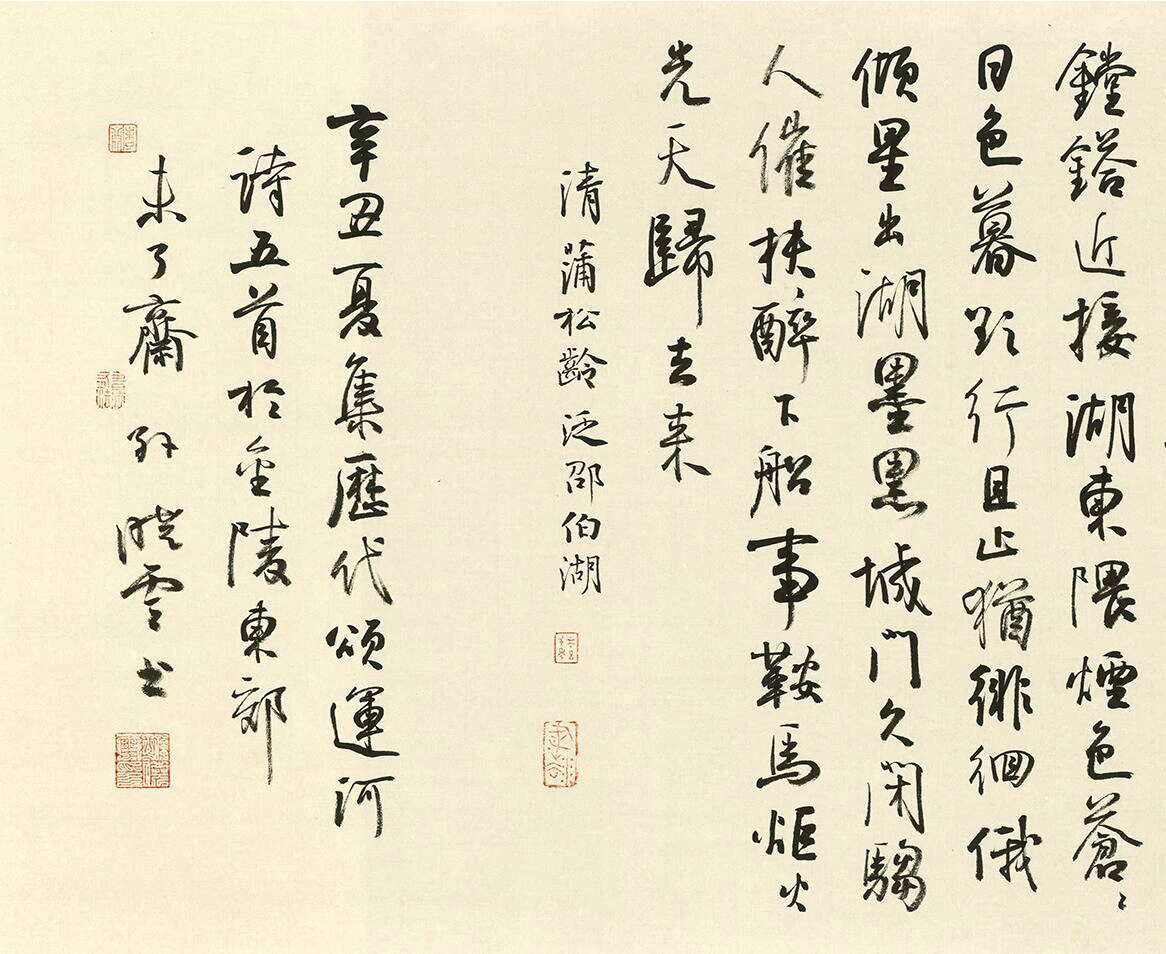 鏜鎝近接湖東隈煙色蒼〻
日色暮欵行且止猶徘徊俄
傾星出湖墨黑城門久閉騶
人催扶醉下船事鞍馬炬火
先天歸去来
清蒲松齡泛邵伯湖
辛丑夏集歷代頌運河
詩五首於金陵東郊
未了齋孫曉雲书